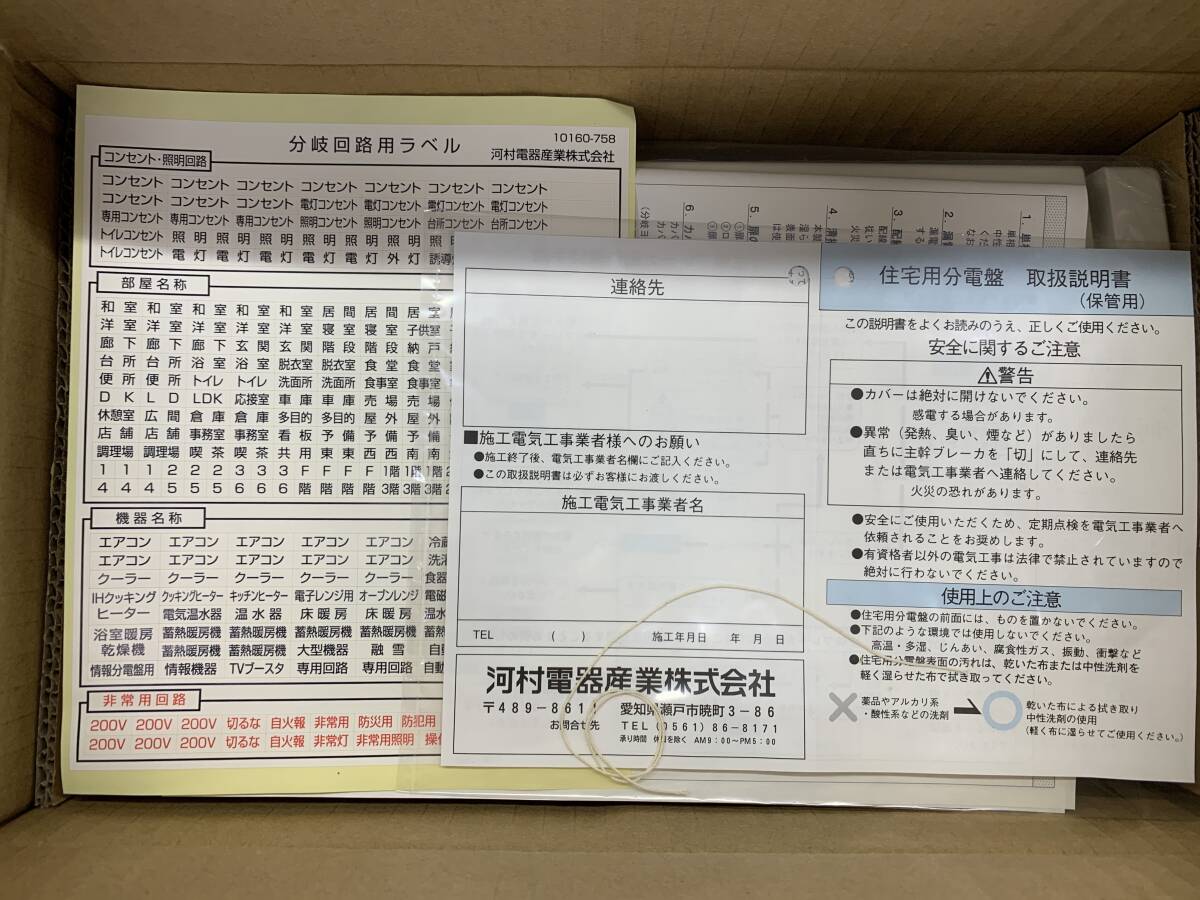 分岐回路用ラベル
10160-758
河村電器産業株式会社
コンセント・照明回路
コンセント コンセント コンセント コンセント コンセント コンセント コンセント
コンセント コンセント コンセント 電灯コンセント 電灯コンセント 電灯コンセント 電灯コンセント
専用コンセント 専用コンセント 専用コンセント 照明コンセント 照明コンセント 台所コンセント 台所コンセント
トイレコンセント 照明 照明 照明 照明 照明 照明
トイレコンセント 電灯 電灯 電灯 電灯 電灯 外灯
部屋名称
和室 和室 和室 和室 居間 居間 居室
洋室 洋室 洋室 洋室 洋室 寝室 寝室 子供室
廊下 廊下 廊下 玄関 玄関 階段 階段 納戸
台所 台所 浴室 浴室 脱衣室 脱衣室 食堂 食堂
便所 便所 トイレ トイレ 洗面所 洗面所 食事室 食事室
DK LD LDK 応接室 車庫 車庫 売場 売場
休憩室 広間 倉庫 倉庫 多目的 多目的 屋外 屋外
店舗 店舗 事務室 事務室 看板 予備 予備 予備
調理場 調理場 喫茶 喫茶 共用 東東 西西 南南
1 1 1 2 2 2 3 3 3 F F F F 1階 1階 1階
4 4 4 5 5 5 6 6 6 階 階 階 階 3階 3階 3階
機器名称
エアコン エアコン エアコン エアコン エアコン
エアコン エアコン エアコン エアコン エアコン
クーラー クーラー クーラー クーラー クーラー
IHクッキング クッキングヒーター キッチンヒーター 電子レンジ用 オーブンレンジ
ヒーター 電気温水器 温水器 床暖房 床暖房
浴室暖房 蓄熱暖房機 蓄熱暖房機 蓄熱暖房機 蓄熱暖房機
乾燥機 蓄熱暖房機 蓄熱暖房機 大型機器 融雪
情報分電盤用 情報機器 TVブースタ 専用回路 専用回路
非常用回路
200V 200V 200V 切るな 自火報 非常用 防災用 防犯用
200V 200V 200V 切るな 自火報 非常灯 非常用照明
連絡先
■施工電気工事業者様へのお願い
●施工終了後、電気工事業者名欄にご記入ください。
●この取扱説明書は必ずお客様にお渡しください。
施工電気工事業者名
TEL ( ) 施工年月日 年 月 日
河村電器産業株式会社
〒489-8611 愛知県瀬戸市暁町3-86
お問合せ先 TEL(0561)86-8171
承り時間 休日を除く AM9:00〜PM5:00
住宅用分電盤 取扱説明書
(保管用)
この説明書をよくお読みのうえ、正しくご使用ください。
安全に関するご注意
⚠警告
●カバーは絶対に開けないでください。
感電する場合があります。
●異常(発熱、臭い、煙など)がありましたら
直ちに主幹ブレーカを「切」にして、連絡先
または電気工事業者へ連絡してください。
火災の恐れがあります。
●安全にご使用いただくため、定期点検を電気工事業者へ
依頼されることをお奨めします。
●有資格者以外の電気工事は法律で禁止されていますので
絶対に行わないでください。
使用上のご注意
●住宅用分電盤の前面には、ものを置かないでください。
●下記のような環境では使用しないでください。
高温・多湿、じんあい、腐食性ガス、振動、衝撃など
●住宅用分電盤表面の汚れは、乾いた布または中性洗剤を
軽く湿らせた布で拭き取ってください。
薬品やアルカリ系
・酸性系などの洗剤
乾いた布による拭き取り
中性洗剤の使用
(軽く布に湿らせてご使用ください。)